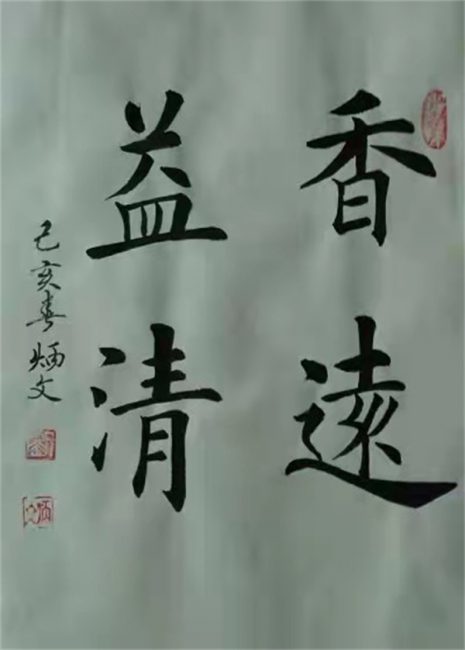 香遠
益清
己亥春炳文